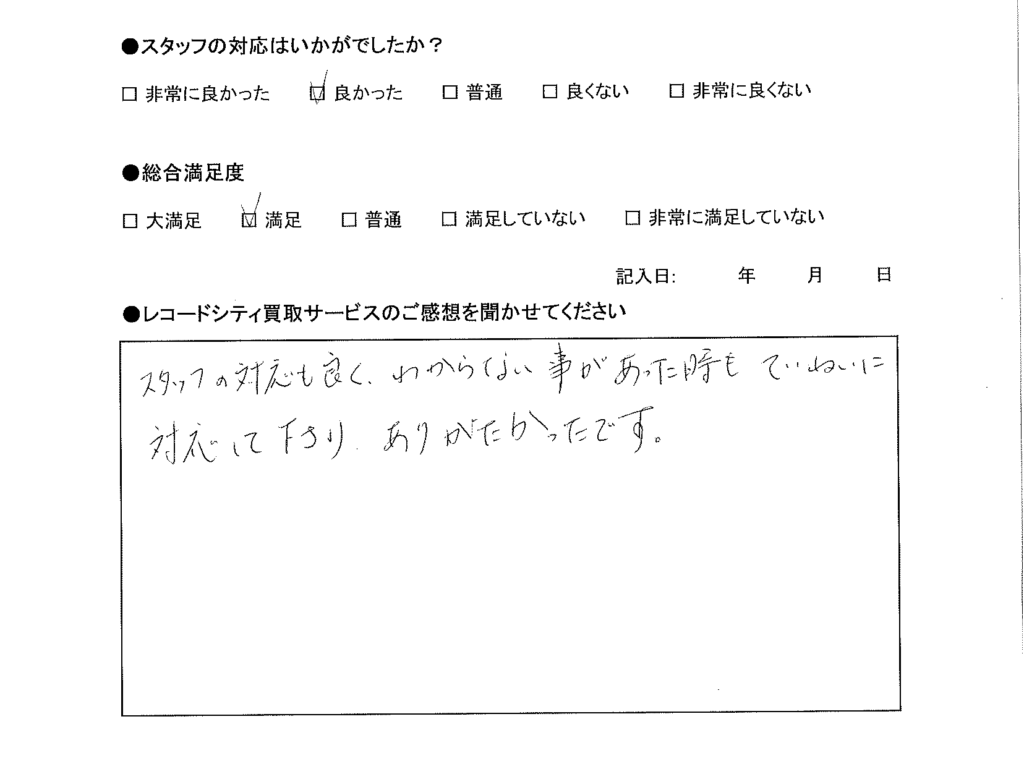 ●スタッフの対応はいかがでしたか？
□ 非常に良かった ☑ 良かった □ 普通 □ 良くない □ 非常に良くない
●総合満足度
□ 大満足 ☑ 満足 □ 普通 □ 満足していない □ 非常に満足していない
記入日: 年 月 日
●レコードシティ買取サービスのご感想を聞かせてください
スタッフの対応も良く、わからない事があった時も ていねいに
対応して下さり、ありがたかったです。